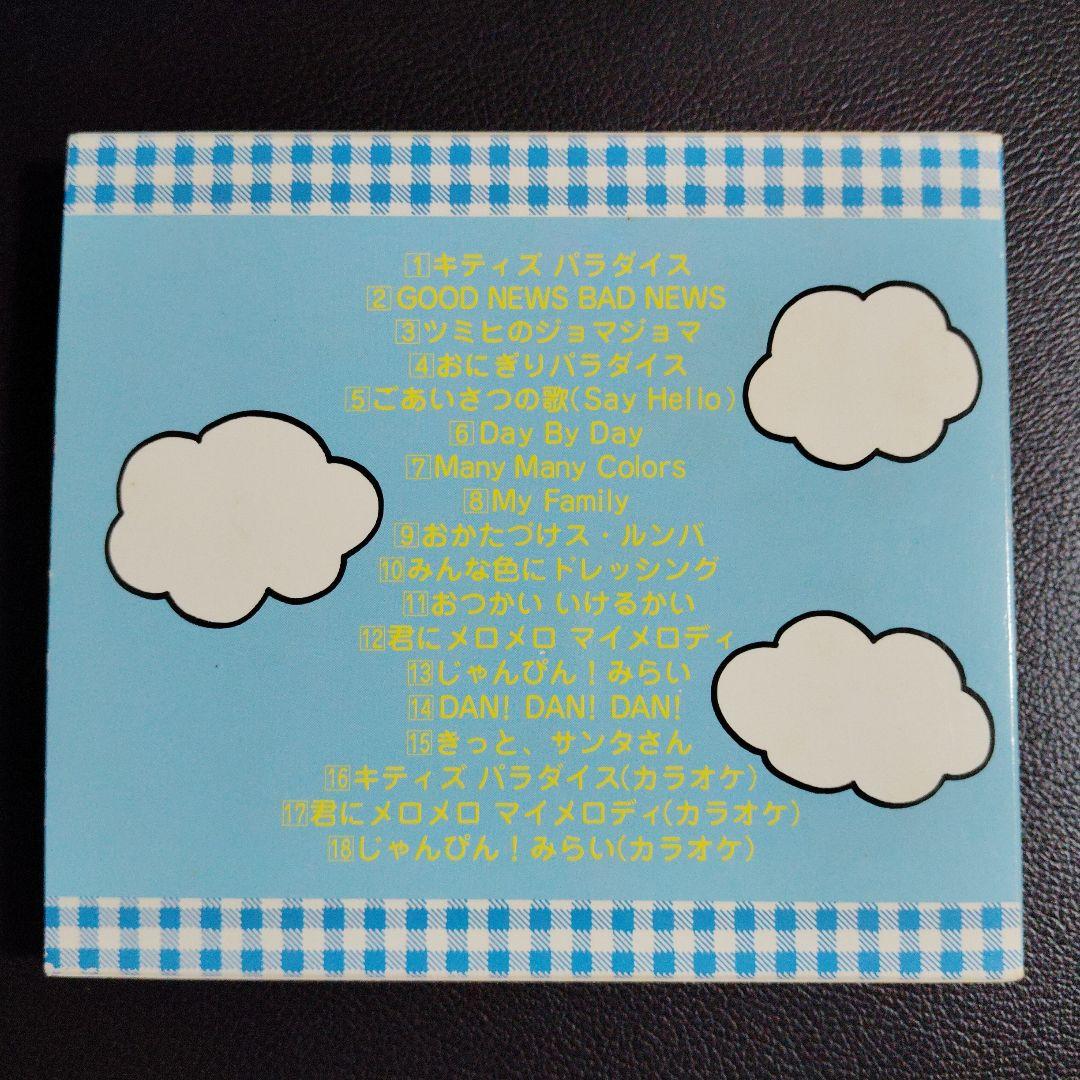 1キティズ パラダイス
2GOOD NEWS BAD NEWS
3ツミヒのジョマジョマ
4おにぎりパラダイス
5ごあいさつの歌(Say Hello)
6Day By Day
7Many Many Colors
8My Family
9おかたづけス・ルンバ
10みんな色にドレッシング
11おつかい いけるかい
12君にメロメロ マイメロディ
13じゃんぴん!みらい
14DAN! DAN! DAN!
15きっと、サンタさん
16キティズ パラダイス(カラオケ)
17君にメロメロ マイメロディ(カラオケ)
18じゃんぴん!みらい(カラオケ)